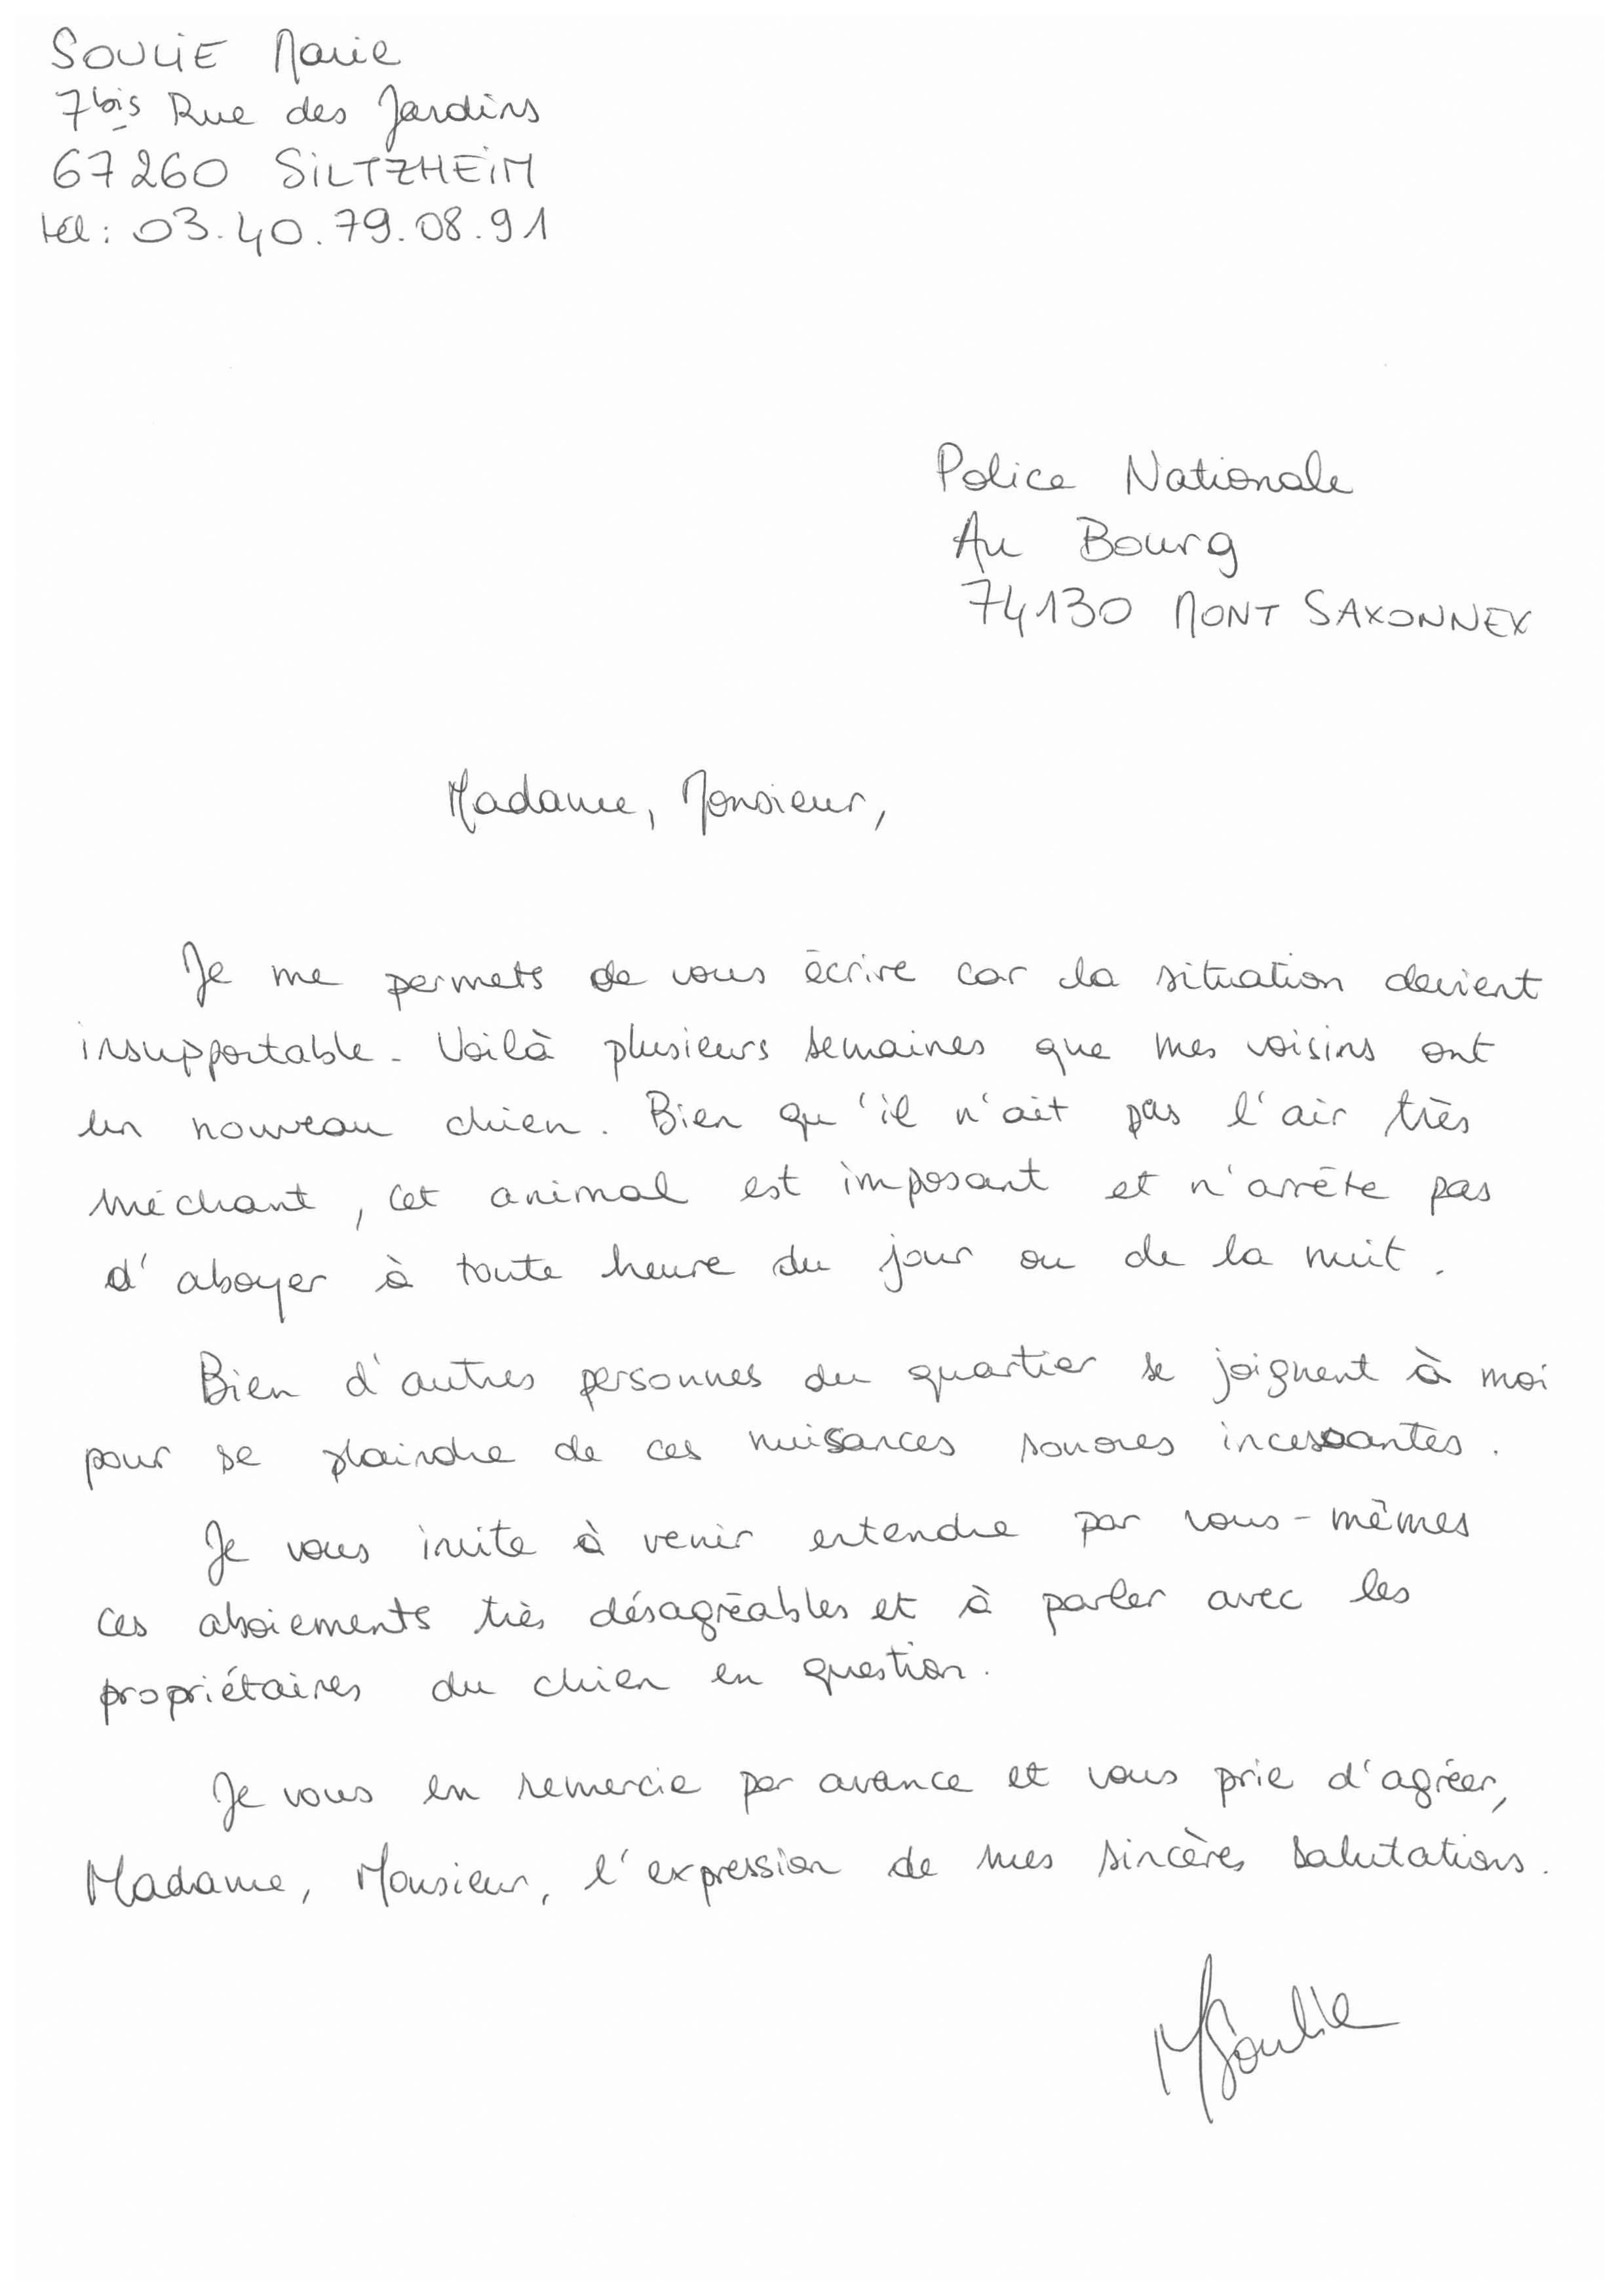 SOULIE Marie
7bis Rue des Jardins
67260 SILTZHEIM
tél : 03.40.79.08.91
Police Nationale
Au Bourg
74130 MONT SAXONNEX
Madame, Monsieur,
Je me permets de vous écrire car la situation devient
insupportable. Voilà plusieurs semaines que mes voisins ont
un nouveau chien. Bien qu'il n'ait pas l'air très
méchant, cet animal est imposant et n'arrête pas
d'aboyer à toute heure du jour ou de la nuit.
Bien d'autres personnes du quartier se joignent à moi
pour se plaindre de ces nuisances sonores incessantes.
Je vous invite à venir entendre par vous-mêmes
ces aboiements très désagréables et à parler avec les
propriétaires du chien en question.
Je vous en remercie par avance et vous prie d'agréer,
Madame, Monsieur, l'expression de mes sincères salutations.
MSoulie